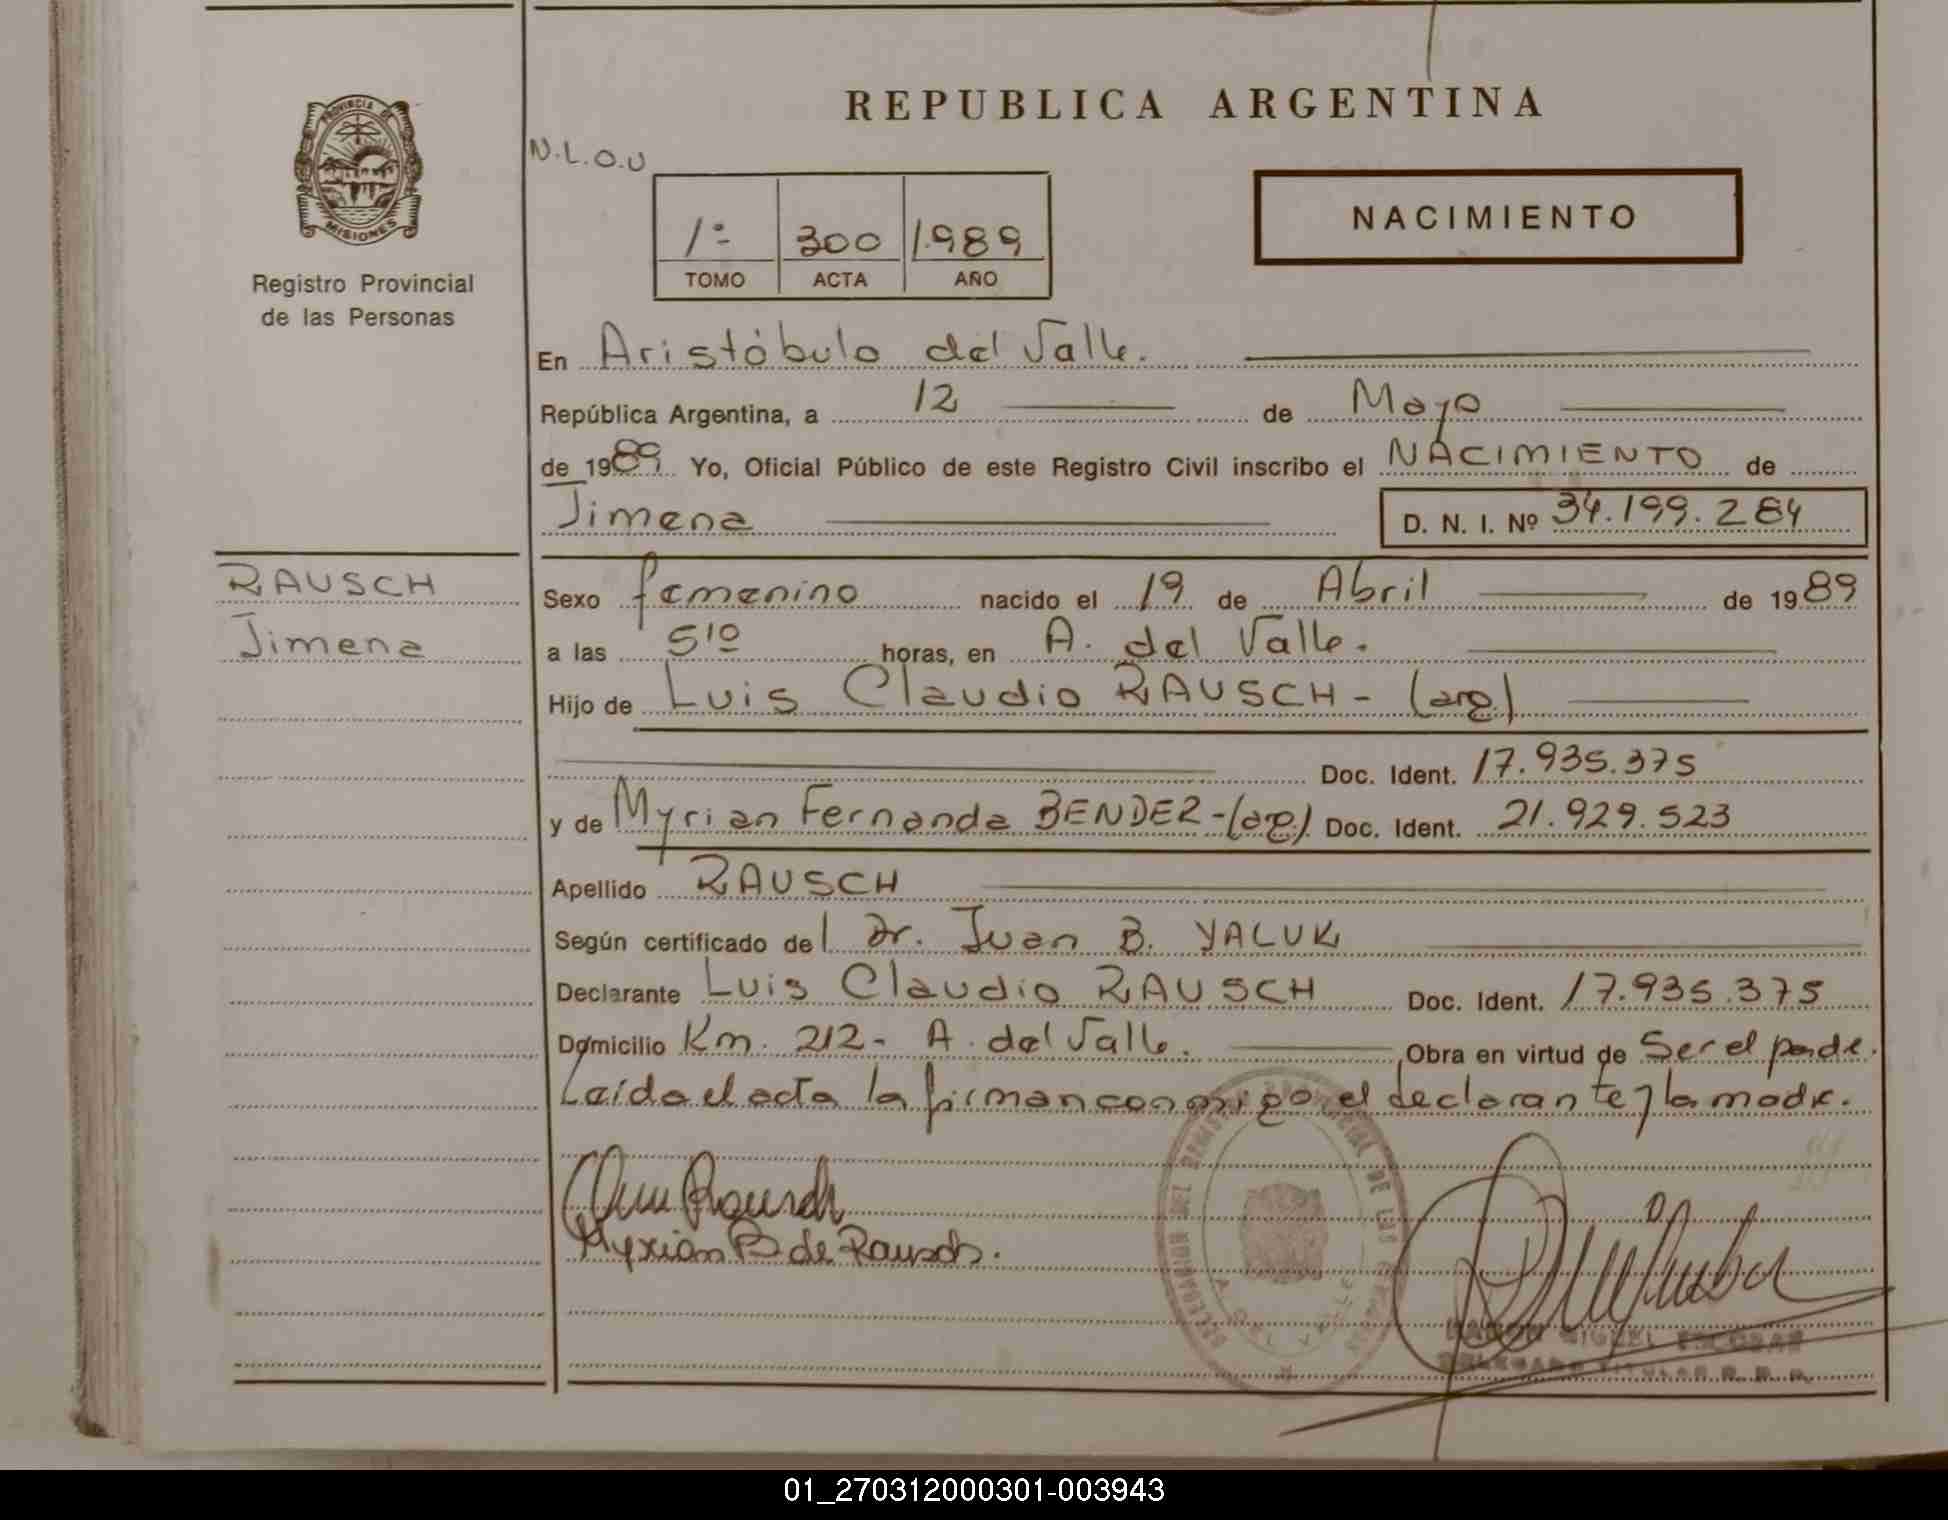 REPUBLICA ARGENTINA
PROVINCIA DE MISIONES
Registro Provincial
de las Personas
N.L.O.U
1º 300 1.989
TOMO ACTA AÑO
NACIMIENTO
En Aristóbulo del Valle.
República Argentina, a 12 de Mayo
de 1989 Yo, Oficial Público de este Registro Civil inscribo el NACIMIENTO de
Jimena D. N. I. Nº 34.199.284
RAUSCH
Jimena
Sexo femenino nacido el 19 de Abril de 1989
a las 5¹⁰ horas, en A. del Valle.
Hijo de Luis Claudio RAUSCH - (arg.)
Doc. Ident. 17.935.375
y de Myrian Fernanda BENDER - (arg.) Doc. Ident. 21.929.523
Apellido RAUSCH
Según certificado del Dr. Juan B. YALUK
Declarante Luis Claudio RAUSCH Doc. Ident. 17.935.375
Domicilio Km. 212 - A. del Valle. Obra en virtud de Ser el padre.
Leída el acta la firman conmigo el declarante y la madre.
Rausch
Myrian B de Rausch.
DELEGACION DEL REGISTRO PROVINCIAL DE LAS PERSONAS
A. DEL VALLE
RAMON MIGUEL ESCOBAR
DELEGADO TITULAR R. P. P.
01_270312000301-003943